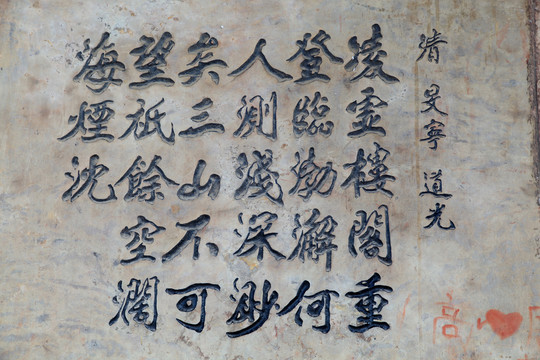 清 旻寧 道光
凌虚樓閣重
登臨渤澥何
人測淺深渺
矣三山不可
望祇餘空濶
海煙沈
高